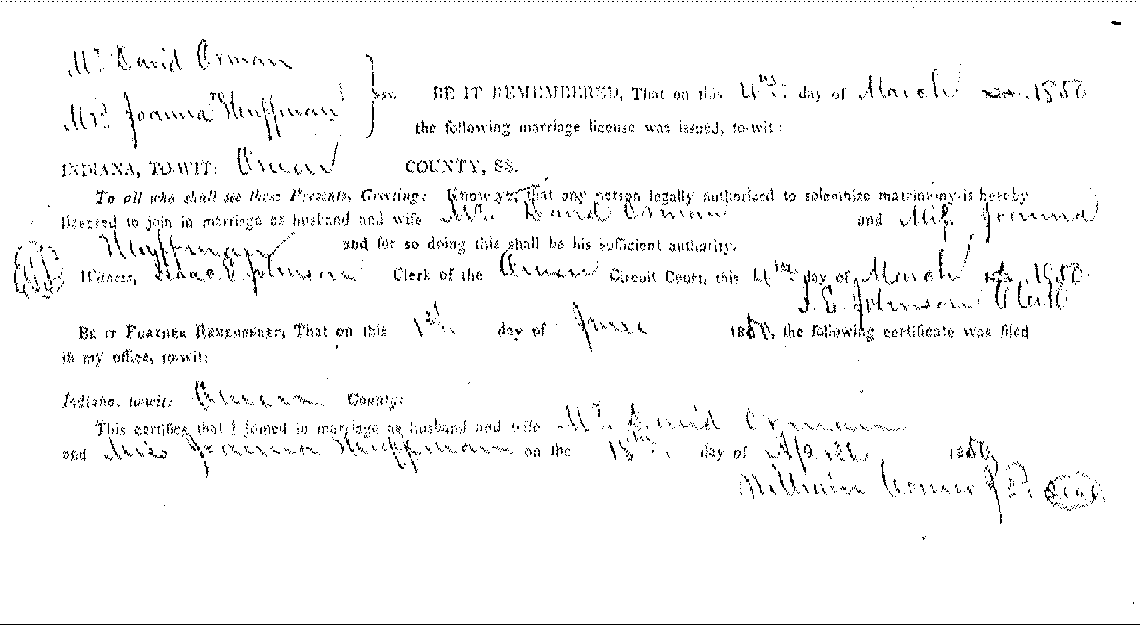 Mr. David Orman
Mrs. Joanna Huffman } ss. BE IT REMEMBERED, That on this 4th day of March 1880
the following marriage license was issued, to-wit:
INDIANA, TO-WIT: Owen COUNTY, SS.
To all who shall see these Presents, Greeting: Know ye, that any person legally authorized to solemnize matrimony is hereby
licensed to join in marriage as husband and wife Mr. David Orman and Miss Joanna
Huffman and for so doing this shall be his sufficient authority.
Witness, Johnson Clerk of the Owen Circuit Court, this 4th day of March 1880
Johnson Clerk
BE IT FURTHER REMEMBERED, That on this 1st. day of June 1880, the following certificate was filed
in my office, to-wit:
Indiana, to-wit: Owen County:
This certifies that I joined in marriage as husband and wife Mr. David Orman
and Miss Joanna Huffman on the 18th. day of April 1880
J P. Seal